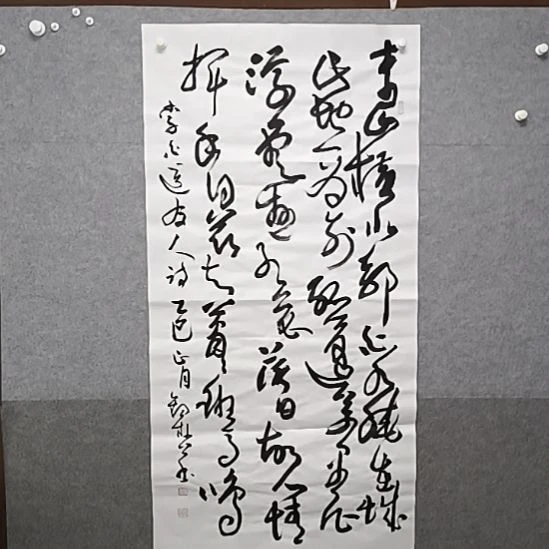 青山横北郭白水绕东城
此地一为别孤蓬万里征
浮云游子意落日故人情
挥手自兹去萧萧班马鸣
李白送友人诗 乙巳正月 书